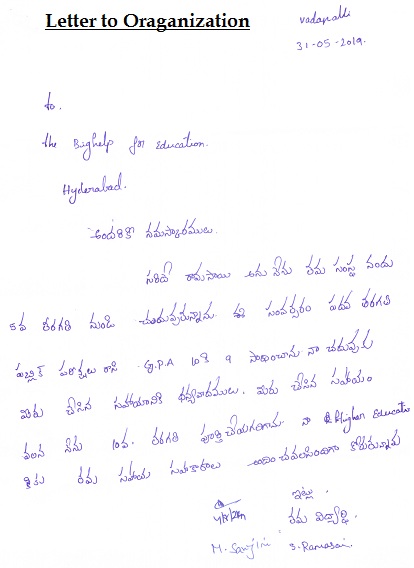 Letter to Oraganization
vadapalli
31-05-2019.
to.
the Bighelp for Education.
Hyderabad.
అందరికి నమస్కారములు.
సరిది రామసాయి అను నేను తమ సంస్థ నందు
6వ తరగతి నుండి చదువుచున్నాను. ఈ సంవత్సరం పదవ తరగతి
పబ్లిక్ పరీక్షలు రాసి G.P.A 10కి 9 సాధించాను నా చదువుకు
మీరు చేసిన సహాయానికి ధన్యవాదములు. మీరు చేసిన సహాయం
వలన నేను 10వ తరగతి పూర్తి చేయగలిగాను. నా Higher Education
కు తమ సహాయ సహకారాలు అందించవలసిందిగా కోరుచున్నాను
ఇట్లు
తమ విద్యార్థి.
M. Sanjini S. Ramasai.